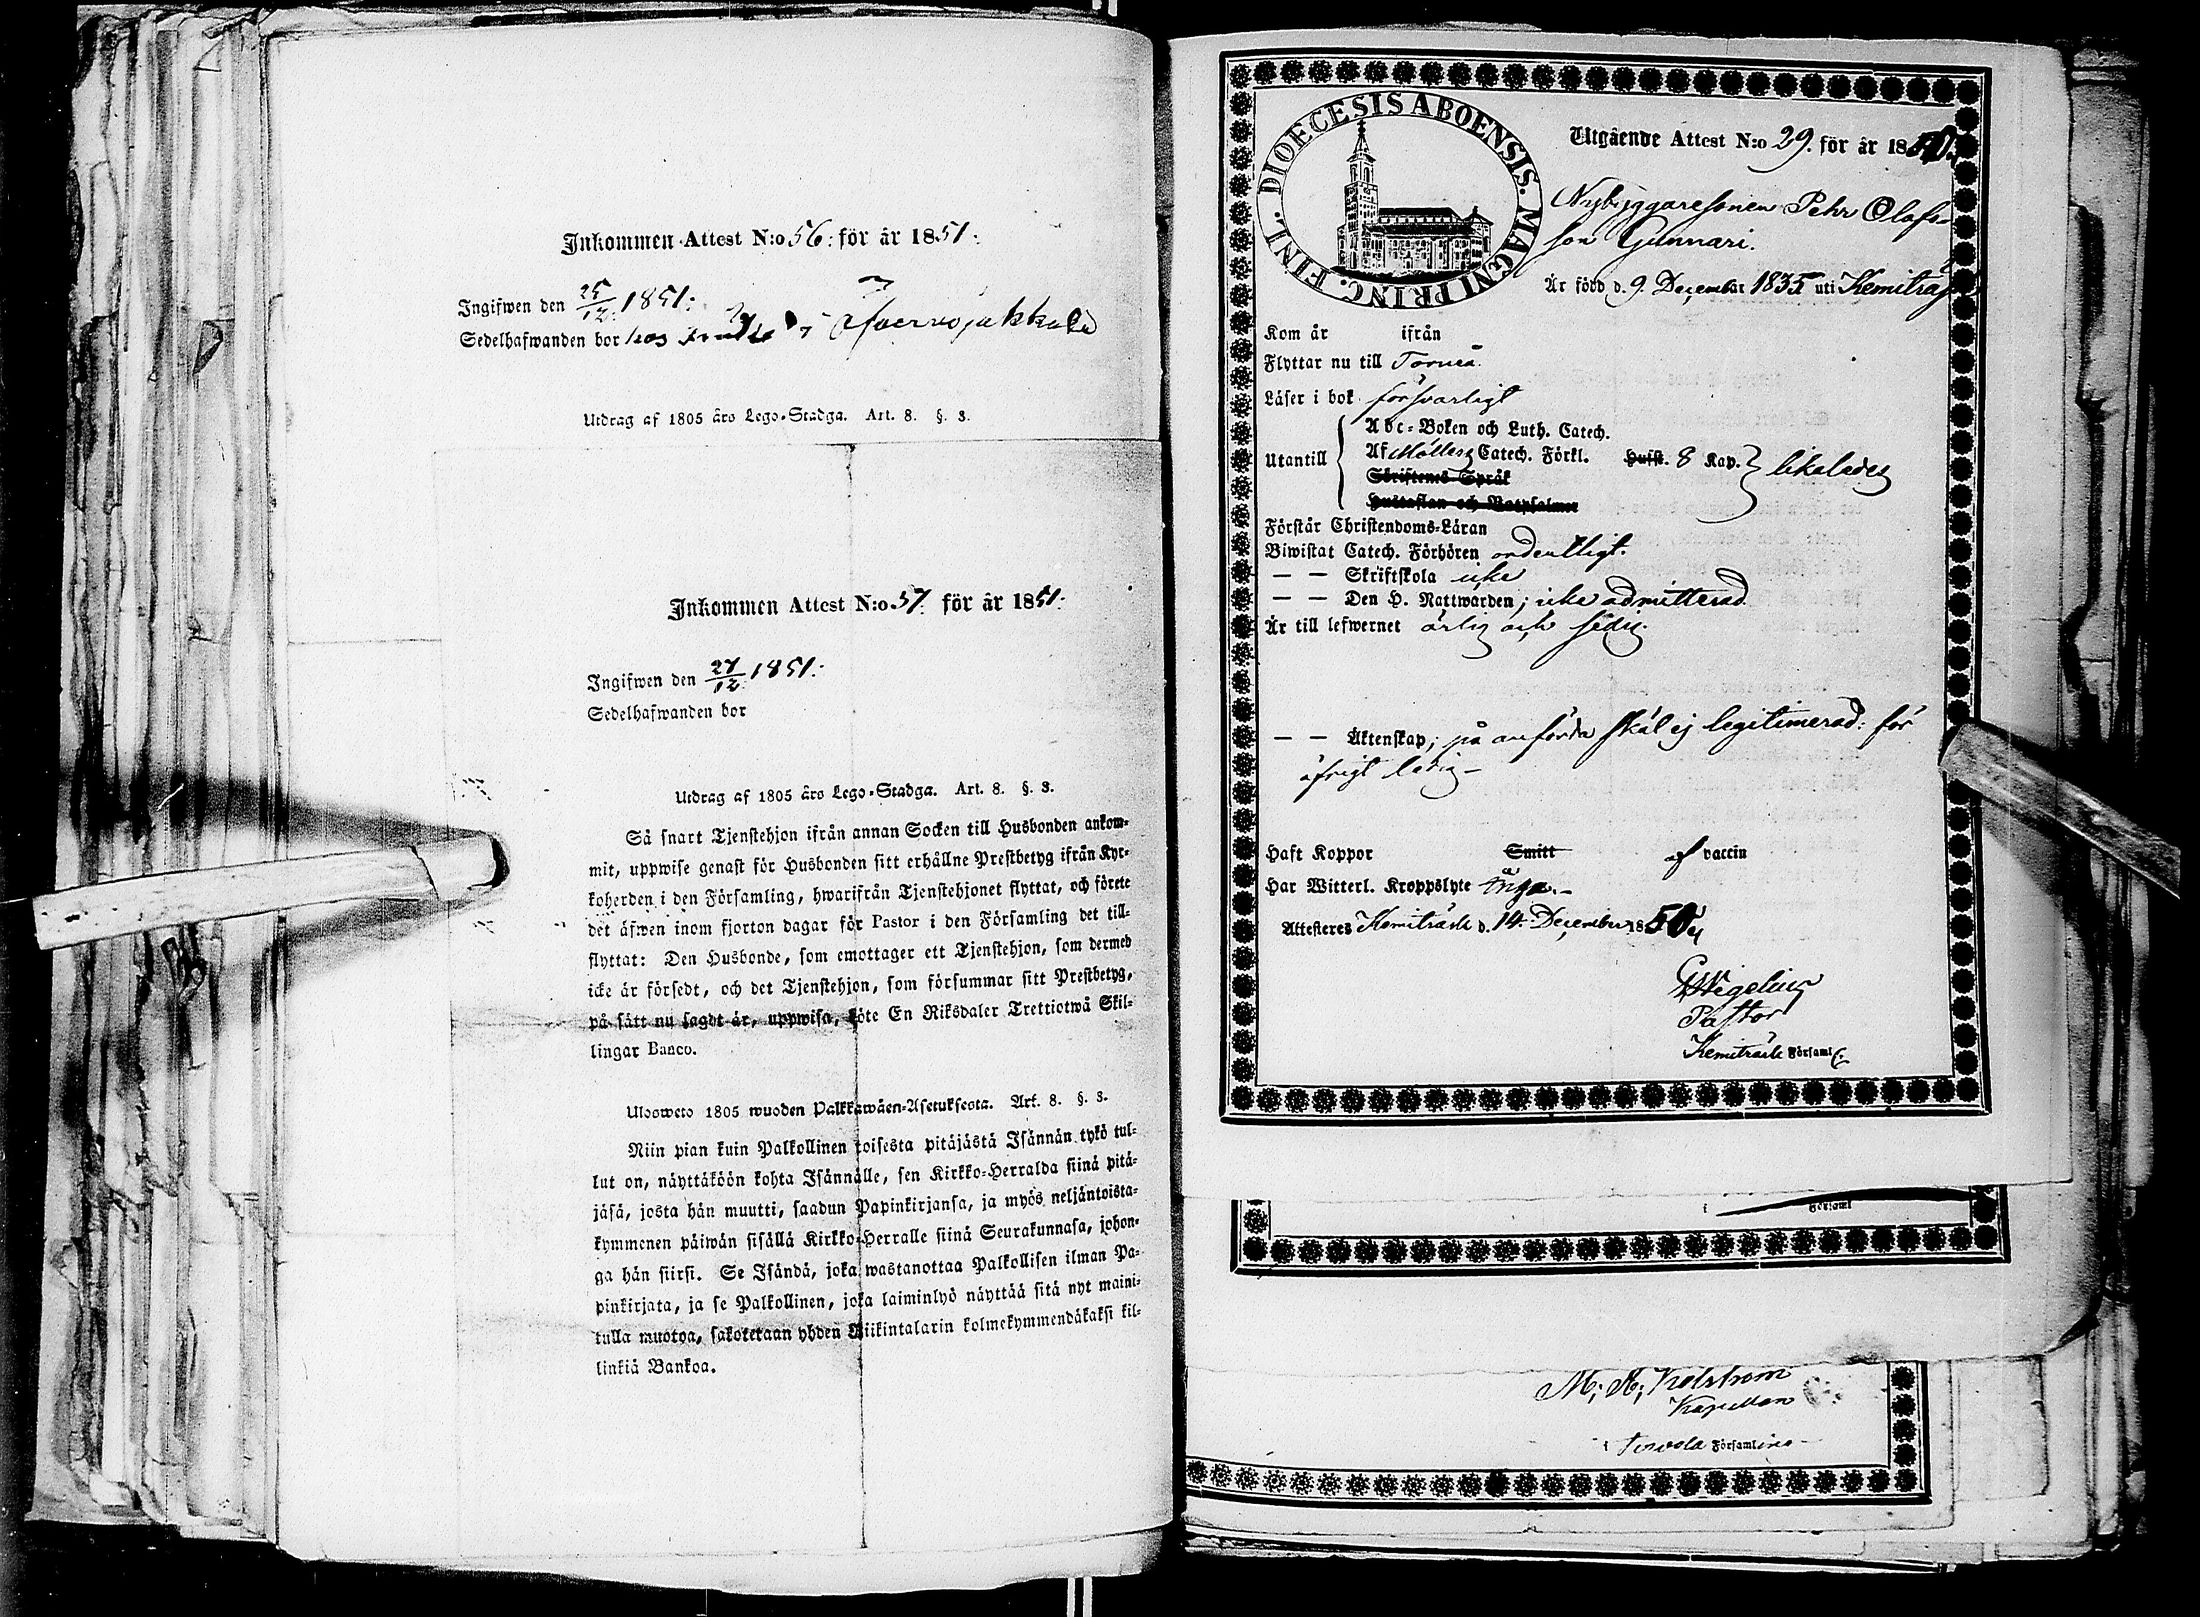 Inkommen Attest N:o 56: för år 1851:
Ingifwen den 25/12: 1851:
Sedelhafwanden bor hos i Åfvervojakkala
Utdrag af 1805 års Lego-Stadga. Art. 8. §. 3.
Inkommen Attest N:o 57: för år 1851:
Ingifwen den 27/12: 1851:
Sedelhafwanden bor
Utdrag af 1805 års Lego-Stadga. Art. 8. §. 3.
Så snart Tjenstehjon ifrån annan Socken till Husbonden ankom-
mit, uppwise genast för Husbonden sitt erhållne Prestbetyg ifrån Kyr-
koherden i den Församling, hwarifrån Tjenstehjonet flyttat, och förete
det äfwen inom fjorton dagar för Pastor i den Församling det till-
flyttat: Den Husbonde, som emottager ett Tjenstehjon, som dermed
icke är försedt, och det Tjenstehjon, som försummar sitt Prestbetyg,
på sätt nu sagdt är, uppwisa, böte En Riksdaler Trettiotwå Skil-
lingar Banco.
Ulosweto 1805 wuoden Palkkawäen-Asetuksesta. Art. 8. §. 3.
Niin pian kuin Palkollinen toisesta pitäjästä Isännän tykö tul-
lut on, näyttäköön kohta Isännälle, sen Kirkko-Herralda siinä pitä-
jäsä, josta hän muutti, saadun Papinkirjansa, ja myös neljäntoista-
kymmenen päiwän sisällä Kirkko-Herralle siinä Seurakunnasa, johon-
ga hän siirsi. Se Isändä, joka wastanottaa Palkollisen ilman Pa-
pinkirjata, ja se Palkollinen, joka laiminlyö näyttää sitä nyt maini-
tulla muotoa, sakotetaan yhden Riikintalarin kolmekymmendäkaksi kil-
linkiä Bankoa.
FINL. DIOECESIS ABOENSIS. MAGNI PRINC.
Utgående Attest N:o 29. för år 1850.
Nybyggaresonen Pehr Olofs
son Gunnari.
Är född d. 9. December 1835 uti Kemiträsk
Kom år ifrån
Flyttar nu till Torneå.
Läser i bok försvarligt
Abc-Boken och Luth. Catech.
Utantill Af Möllers Catech. Förkl. Husst. 8 Kap. likaledes
Skriftenes Språk
Hustaflan och Botpsalmer
Förstår Christendoms-Läran
Biwistat Catech. Förhören ordentligt.
— — Skriftskola icke
— — Den H. Nattwarden; icke admitterad
Är till lefwernet ärlig och sedig.
— — Äktenskap; på anförda skäl ej legitimerad: för
öfrigt ledig —
Haft Koppor Smitt af vaccin
Har Witterl. Kroppslyte inga. —
Attesteres Kemiträsk d. 14. December 1850
Wegelius
Pastor
Kemiträsk Församl.
Församl
Kapellan
i Tervola Församling